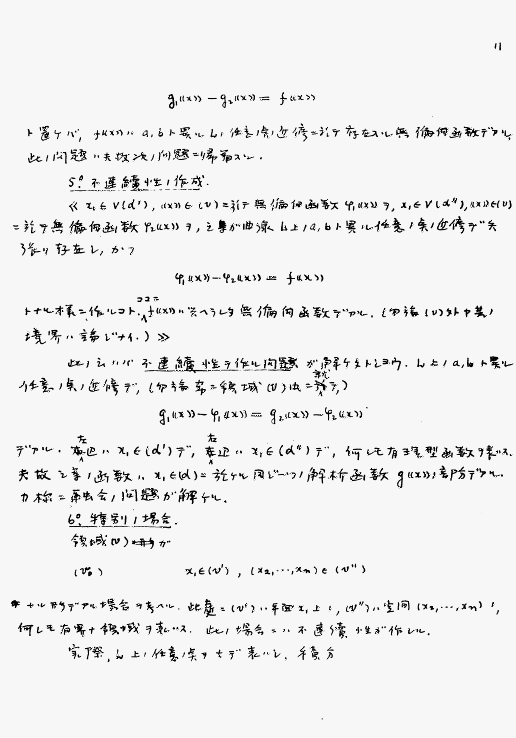 11
g₁((x)) − g₂((x)) = f((x))
ト置ケバ, f((x))ハ a, bト異ル L₁ノ任意ノ点ノ近傍ニ於テ存在スル無偏函函数デアル.
此ノ問題ハ夫故次ノ問題ニ帰着スル.
5° 不連續性ノ作成.
≪ x₁∈V(d′), ((x))∈(V)ニ於テ無偏函函数 φ₁((x))ヲ, x₁∈V(d″), ((x))∈(V)
ニ於テ無偏函函数 φ₂((x))ヲ, 之等が曲線 L上ノ a, bト異ル任意ノ点ノ近傍デ矢
張リ存在シ, かつ
φ₁((x)) − φ₂((x)) = f((x))
トナル様ニ作ルコト. ココニ f((x))ハ与ヘラレタ無偏函函数デアル. (勿論 (V)外ヤ其ノ
境界ハ論ジナイ.) ≫
此ノ 不連續性ヲ作ル問題 が解ケタトシヨウ. L上ノ a, bト異ル
任意ノ点ノ近傍デ, (勿論 常ニ領域 (V)内ニ就テ,)
g₁((x)) − φ₁((x)) = g₂((x)) − φ₂((x))
デアル. 左辺ハ x₁∈(d′)デ, 右辺ハ x₁∈(d″)デ, 何レモ有理型函数ヲ表ハス.
夫故之等ノ函数ハ x₁∈(d)ニ於ケル同ジ一ツノ解析函数 g((x))ノ部分デアル.
カ様ニ再会ノ問題が解ケル.
6° 特別ノ場合.
領域(V)が
(V₀) x₁∈(V′), (x₂, ···, xₙ)∈(V″)
ナル形デアル場合ヲ考ヘル. 此處ニ(V′)ハ平面 x₁上ノ, (V″)ハ空間 (x₂, ···, xₙ)ノ,
何レモ有界ナ領域ヲ表ハス. 此ノ場合ニハ不連續性が作レル.
実際, L上ノ任意ノ点ヲ tデ表ハシ, 積分